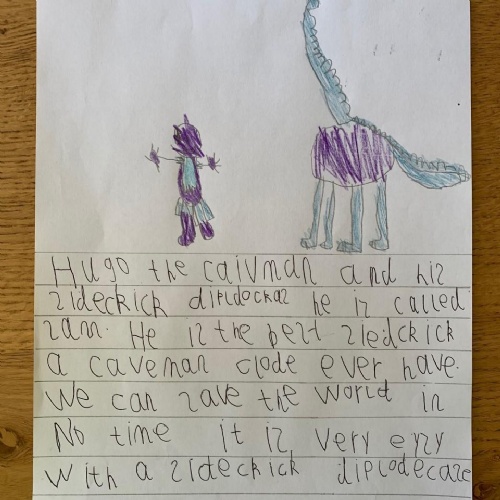 Hugo the caivman and his
sideckick dipldockas he is called
sam. He is the best siedckick
a caveman clode ever have.
We can save the world in
No time it is very eysy
with a sideckick diplodecase